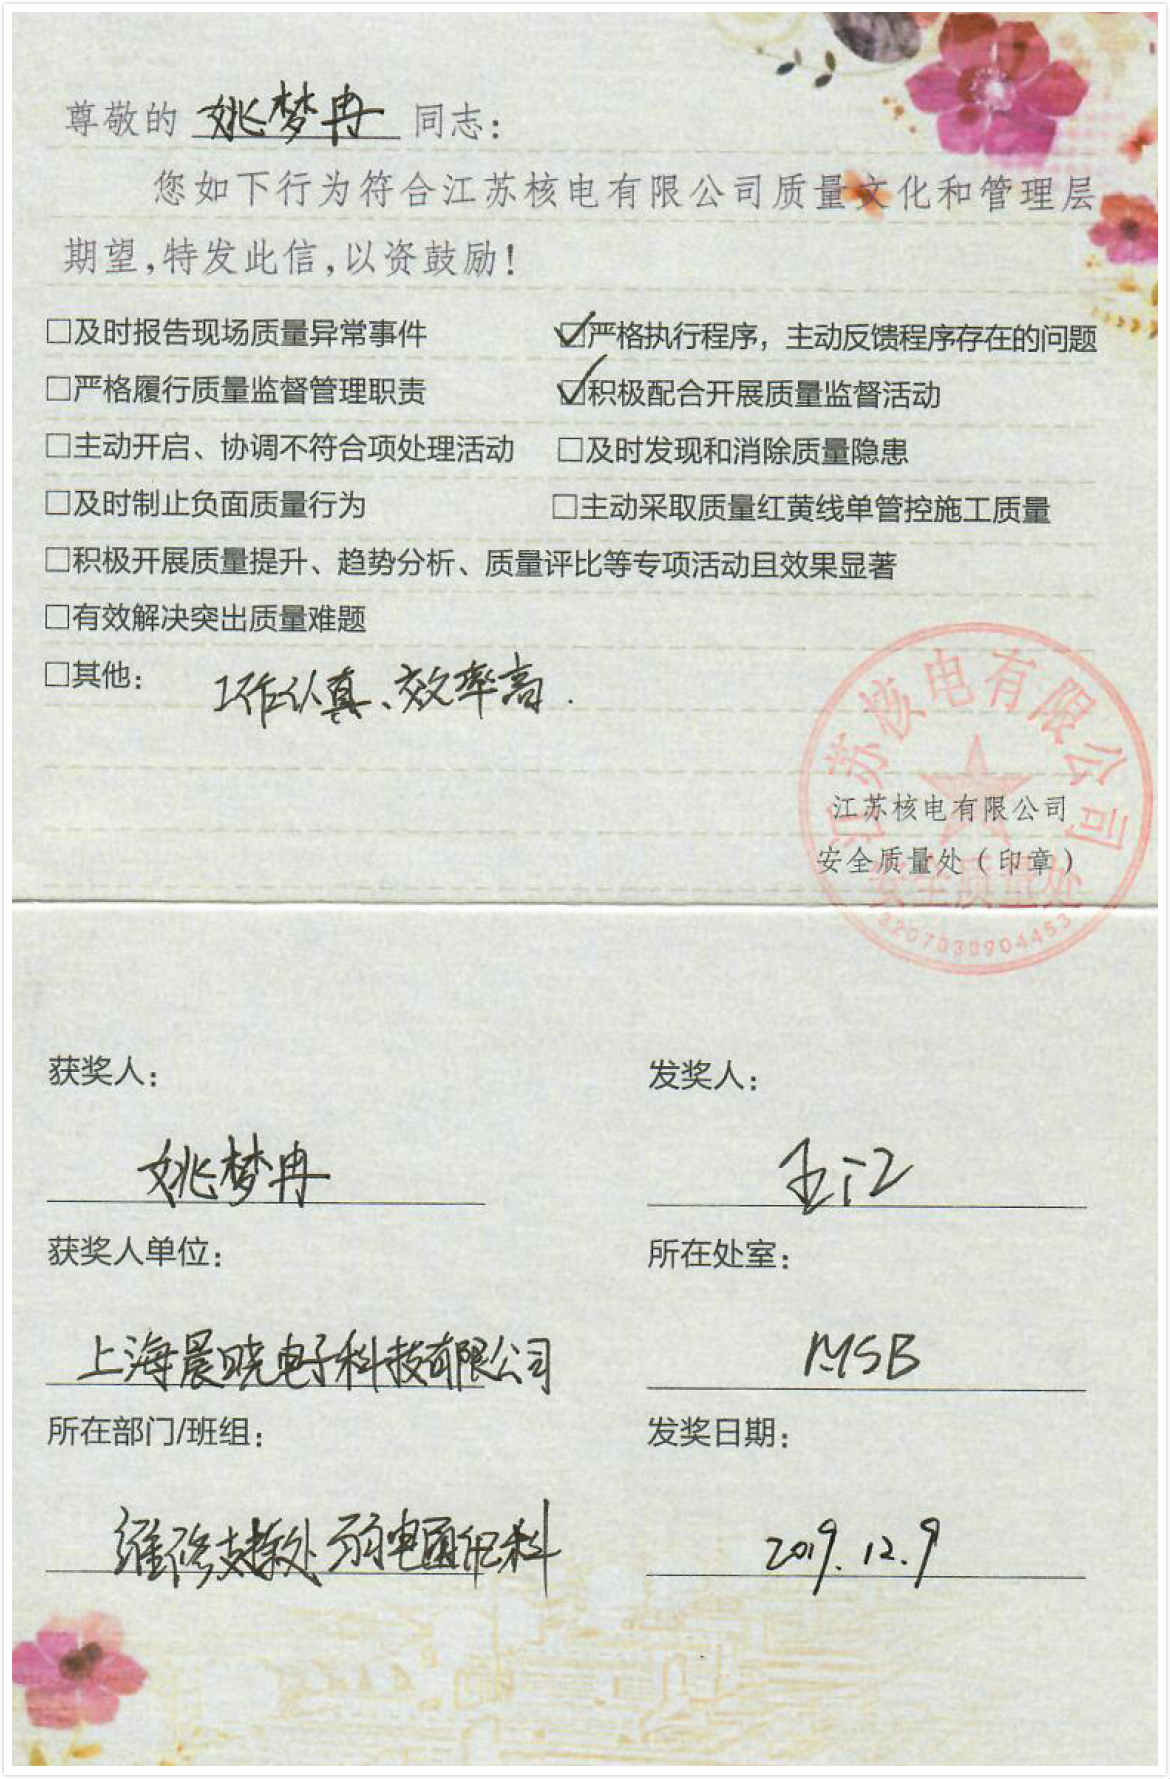 尊敬的 姚梦冉 同志：
您如下行为符合江苏核电有限公司质量文化和管理层
期望，特发此信，以资鼓励！
□及时报告现场质量异常事件 ☑严格执行程序，主动反馈程序存在的问题
□严格履行质量监督管理职责 ☑积极配合开展质量监督活动
□主动开启、协调不符合项处理活动 □及时发现和消除质量隐患
□及时制止负面质量行为 □主动采取质量红黄线单管控施工质量
□积极开展质量提升、趋势分析、质量评比等专项活动且效果显著
□有效解决突出质量难题
□其他： 工作认真、效率高.
江苏核电有限公司
江苏核电有限公司
安全质量处（印章）
安全质量处
3207030904453
获奖人： 发奖人：
姚梦冉 王江
获奖人单位： 所在处室：
上海晨晓电子科技有限公司 MSB
所在部门/班组： 发奖日期：
维修支持处 弱电 科 2019.12.9